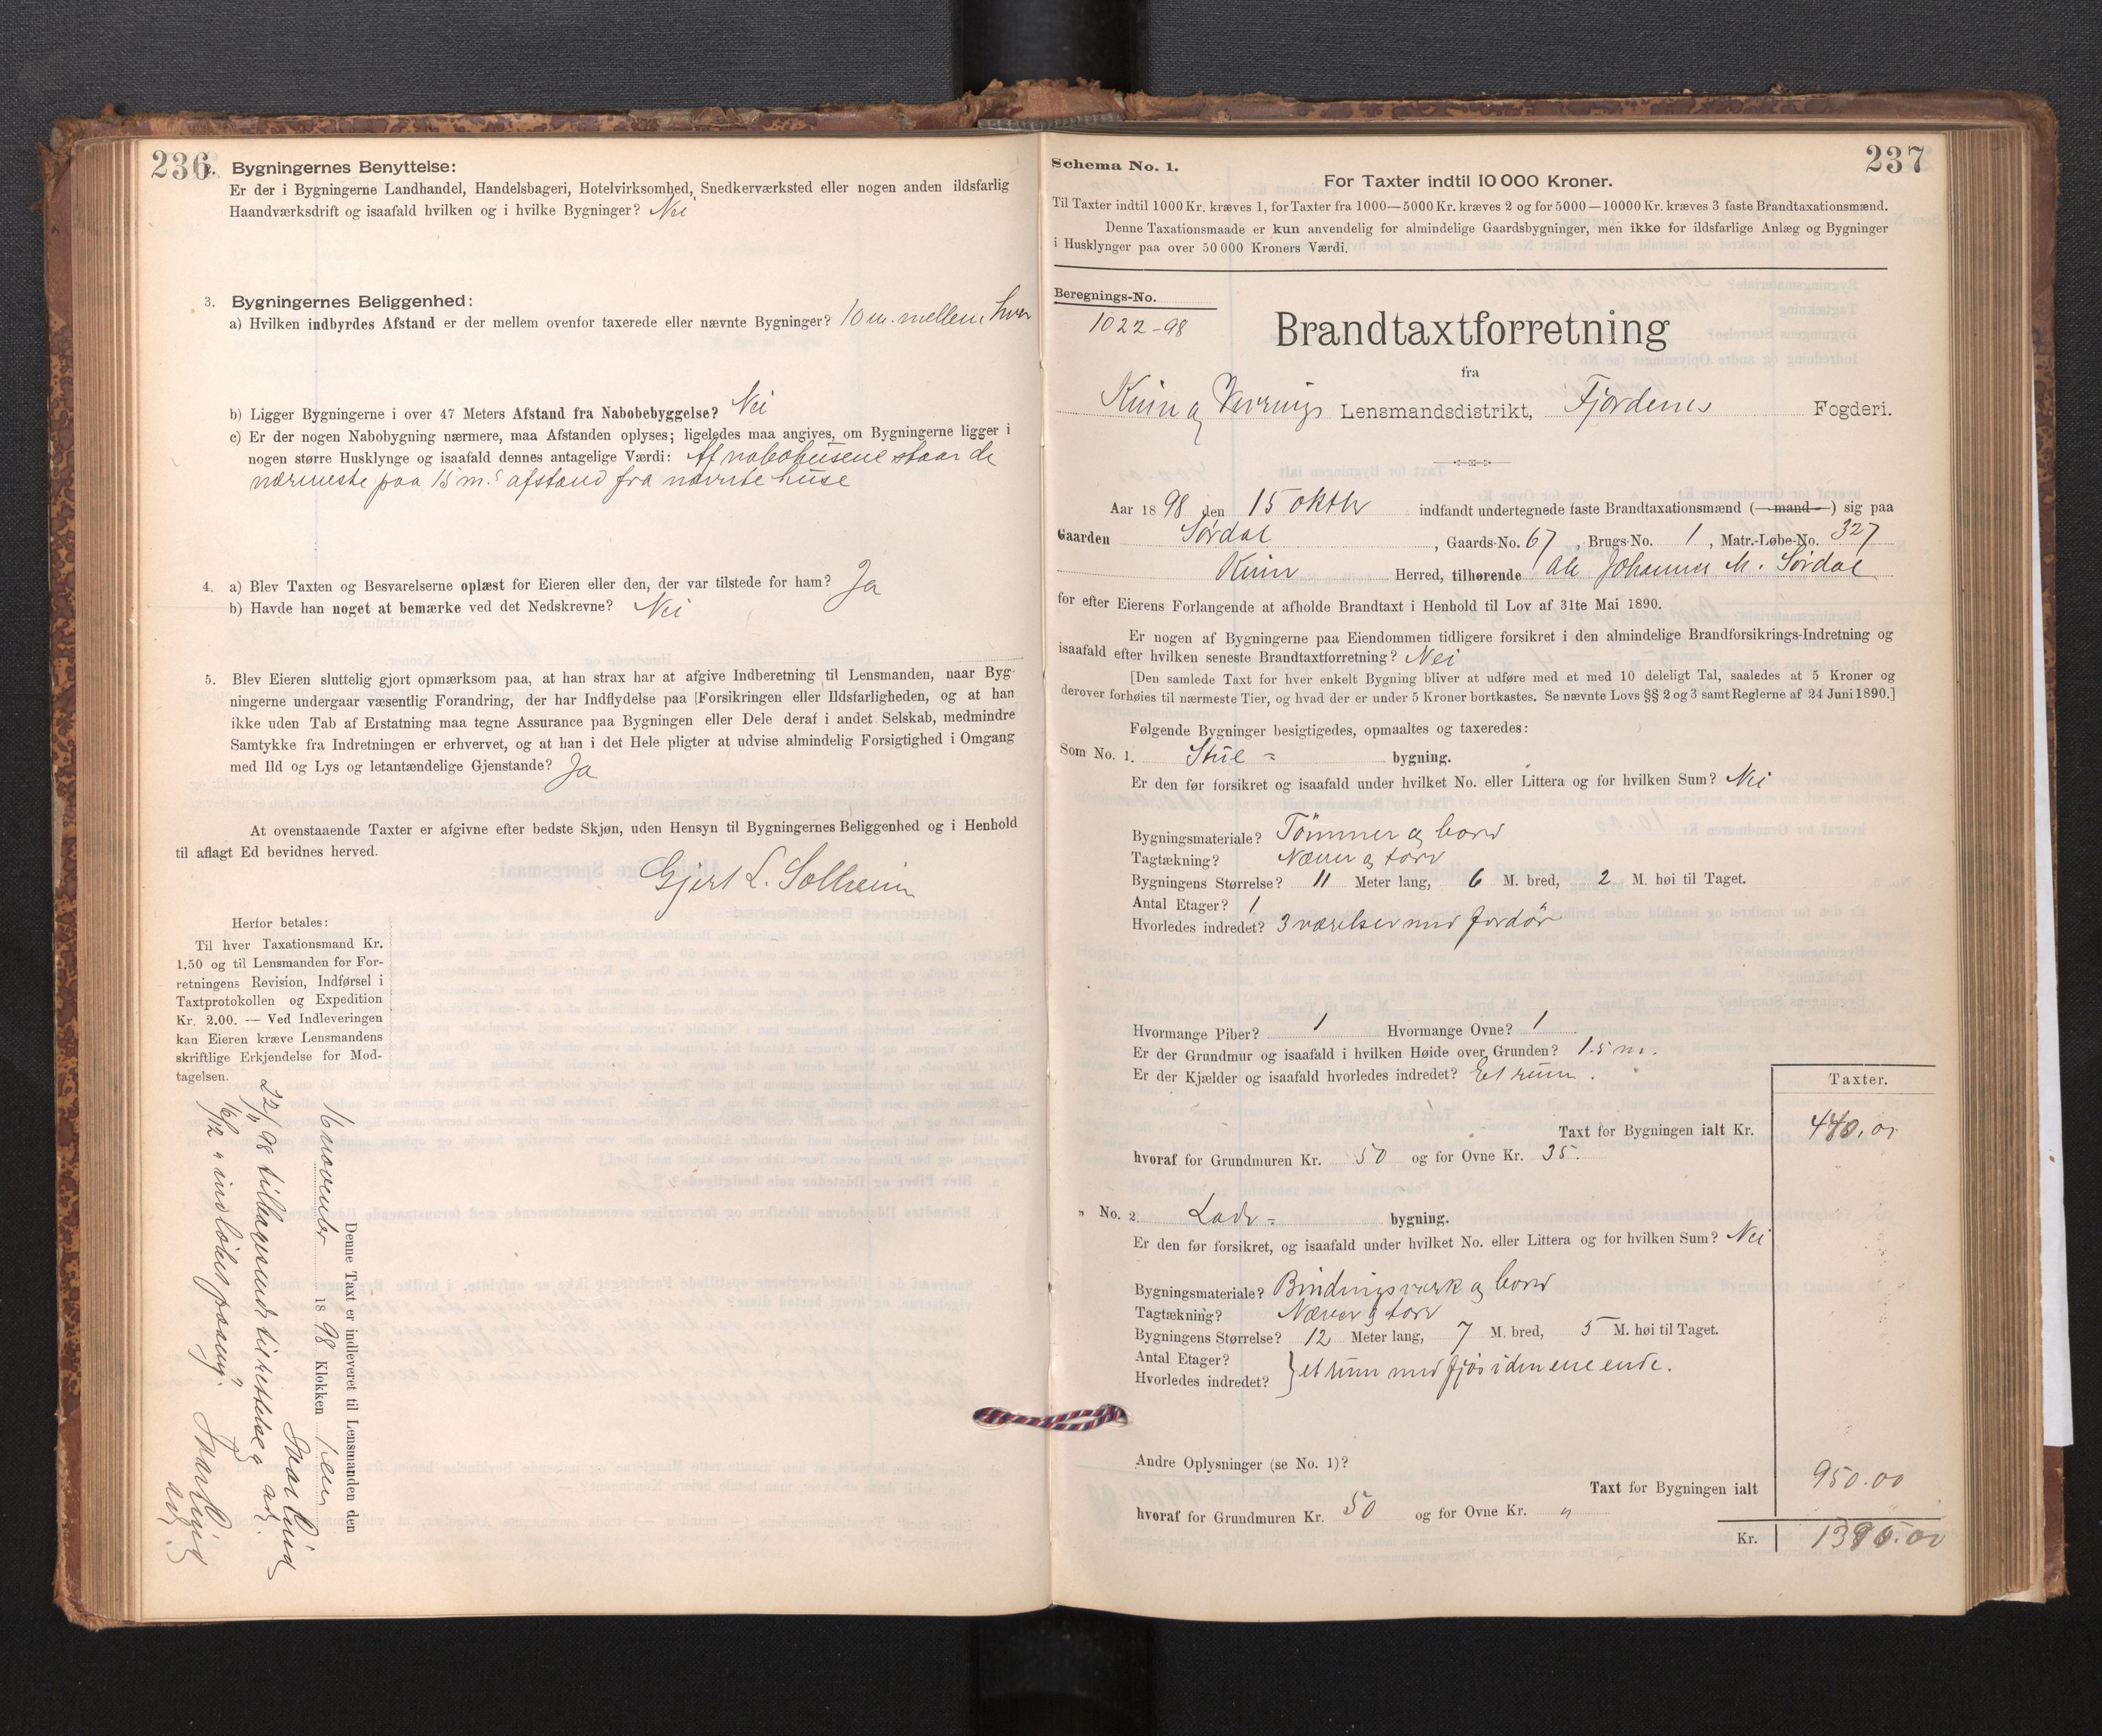 236
2. Bygningernes Benyttelse:
Er der i Bygningerne Landhandel, Handelsbageri, Hotelvirksomhed, Snedkerværksted eller nogen anden ildsfarlig
Haandværksdrift og isaafald hvilken og i hvilke Bygninger? Nei
3. Bygningernes Beliggenhed:
a) Hvilken indbyrdes Afstand er der mellem ovenfor taxerede eller nævnte Bygninger? 10 m. mellem hver
b) Ligger Bygningerne i over 47 Meters Afstand fra Nabobebyggelse? Nei
c) Er der nogen Nabobygning nærmere, maa Afstanden oplyses; ligeledes maa angives, om Bygningerne ligger i
nogen større Husklynge og isaafald dennes antagelige Værdi: Af nabohusene staar de
nærmeste paa 15 m.s afstand fra nævnte huse
4. a) Blev Taxten og Besvarelserne oplæst for Eieren eller den, der var tilstede for ham? Ja
b) Havde han noget at bemærke ved det Nedskrevne? Nei
5. Blev Eieren sluttelig gjort opmærksom paa, at han strax har at afgive Indberetning til Lensmanden, naar Byg-
ningerne undergaar væsentlig Forandring, der har Indflydelse paa Forsikringen eller Ildsfarligheden, og at han
ikke uden Tab af Erstatning maa tegne Assurance paa Bygningen eller Dele deraf i andet Selskab, medmindre
Samtykke fra Indretningen er erhvervet, og at han i det Hele pligter at udvise almindelig Forsigtighed i Omgang
med Ild og Lys og letantændelige Gjenstande? Ja
At ovenstaaende Taxter er afgivne efter bedste Skjøn, uden Hensyn til Bygningernes Beliggenhed og i Henhold
til aflagt Ed bevidnes herved.
Gjert L. Solheim
Herfor betales:
Til hver Taxationsmand Kr.
1.50 og til Lensmanden for For-
retningens Revision, Indførsel i
Taxtprotokollen og Expedition
Kr. 2.00. — Ved Indleveringen
kan Eieren kræve Lensmandens
skriftlige Erkjendelse for Mod-
tagelsen.
Denne Taxt er indleveret til Lensmanden den
6 november 1898 Klokken
22/11 98 tilbagesendt til rettelse
6/12 " indløbet paany.
237
Schema No. 1.
For Taxter indtil 10 000 Kroner.
Til Taxter indtil 1000 Kr. kræves 1, for Taxter fra 1000—5000 Kr. kræves 2 og for 5000—10000 Kr. kræves 3 faste Brandtaxationsmænd.
Denne Taxationsmaade er kun anvendelig for almindelige Gaardsbygninger, men ikke for ildsfarlige Anlæg og Bygninger
i Husklynger paa over 50 000 Kroners Værdi.
Beregnings-No.
1022-98
Brandtaxtforretning
fra
Kinn og Vevrings Lensmandsdistrikt, Fjordenes Fogderi.
Aar 1898 den 15 oktbr indfandt undertegnede faste Brandtaxationsmænd (mand) sig paa
Gaarden Sørdal, Gaards-No. 67, Brugs-No. 1, Matr.-Løbe-No. 327
Kinn Herred, tilhørende Johannes M. Sørdal
for efter Eierens Forlangende at afholde Brandtaxt i Henhold til Lov af 31te Mai 1890.
Er nogen af Bygningerne paa Eiendommen tidligere forsikret i den almindelige Brandforsikrings-Indretning og
isaafald efter hvilken seneste Brandtaxtforretning? Nei
[Den samlede Taxt for hver enkelt Bygning bliver at udføre med et med 10 deleligt Tal, saaledes at 5 Kroner og
derover forhøies til nærmeste Tier, og hvad der er under 5 Kroner bortkastes. Se nævnte Lovs §§ 2 og 3 samt Reglerne af 24 Juni 1890.]
Følgende Bygninger besigtigedes, opmaaltes og taxeredes:
Som No. 1. Stue = bygning.
Er den før forsikret og isaafald under hvilket No. eller Littera og for hvilken Sum? Nei
Bygningsmateriale? Tømmer og bord
Tagtækning? Næver og torv
Bygningens Størrelse? 11 Meter lang, 6 M. bred, 2 M. høi til Taget.
Antal Etager? 1
Hvorledes indredet? 3 værelser med fordør
Hvormange Piber? 1 Hvormange Ovne? 1
Er der Grundmur og isaafald i hvilken Høide over Grunden? 1.5 m.
Er der Kjælder og isaafald hvorledes indredet? Et rum.
Taxter.
Taxt for Bygningen ialt Kr. 440,00
hvoraf for Grundmuren Kr. 50 og for Ovne Kr. 35.
" No. 2. Lade = bygning.
Er den før forsikret, og isaafald under hvilket No. eller Littera og for hvilken Sum? Nei
Bygningsmateriale? Bindingsværk og bord
Tagtækning? Næver og torv
Bygningens Størrelse? 12 Meter lang, 7 M. bred, 5 M. høi til Taget.
Antal Etager?
Hvorledes indredet? } et rum med fjøs i den ene ende.
Andre Oplysninger (se No. 1)?
Taxt for Bygningen ialt 950.00
hvoraf for Grundmuren Kr. 50 og for Ovne Kr. "
Kr. 1390.00